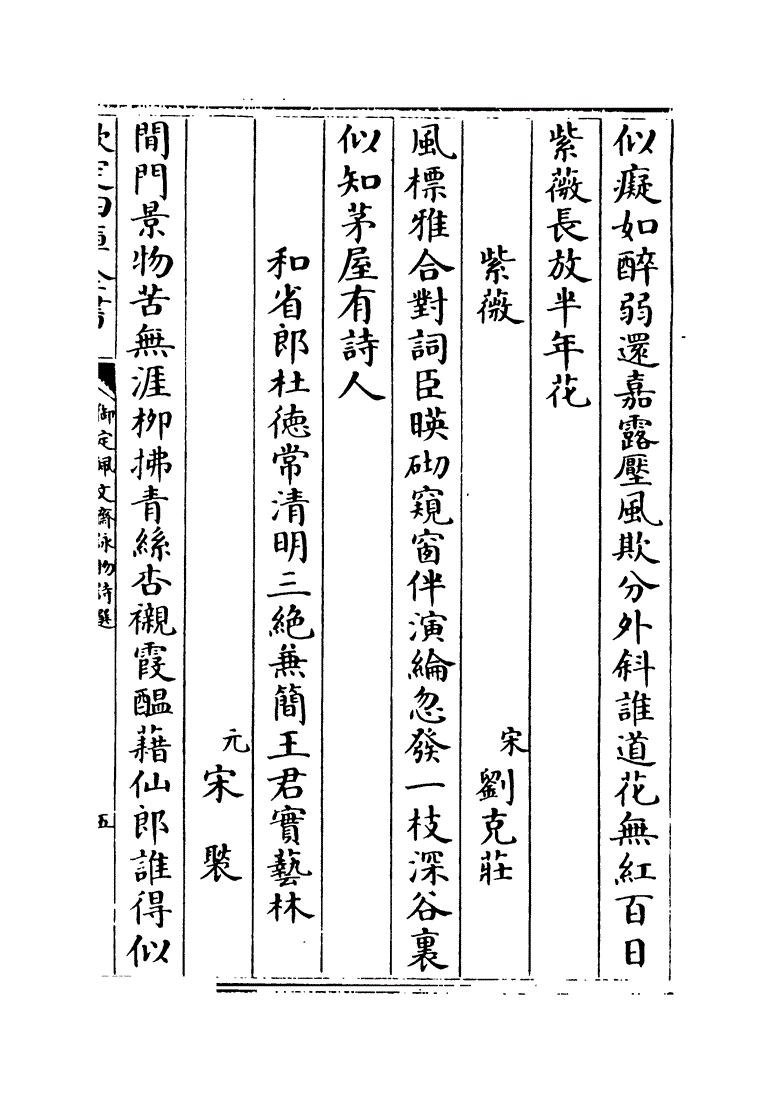 似癡如醉弱還嘉露壓風欺分外斜誰道花無紅百日
紫薇長放半年花
紫薇
宋劉克莊
風標雅合對詞臣暎砌窺窗伴演綸忽發一枝深谷裏
似知茅屋有詩人
和省郎杜徳常清明三絶兼簡王君實藝林
元宋褧
閶門景物苦無涯栁拂青絲杏襯霞醖藉仙郎誰得似
欽定四庫全書
御定佩文齋詠物詩選
五